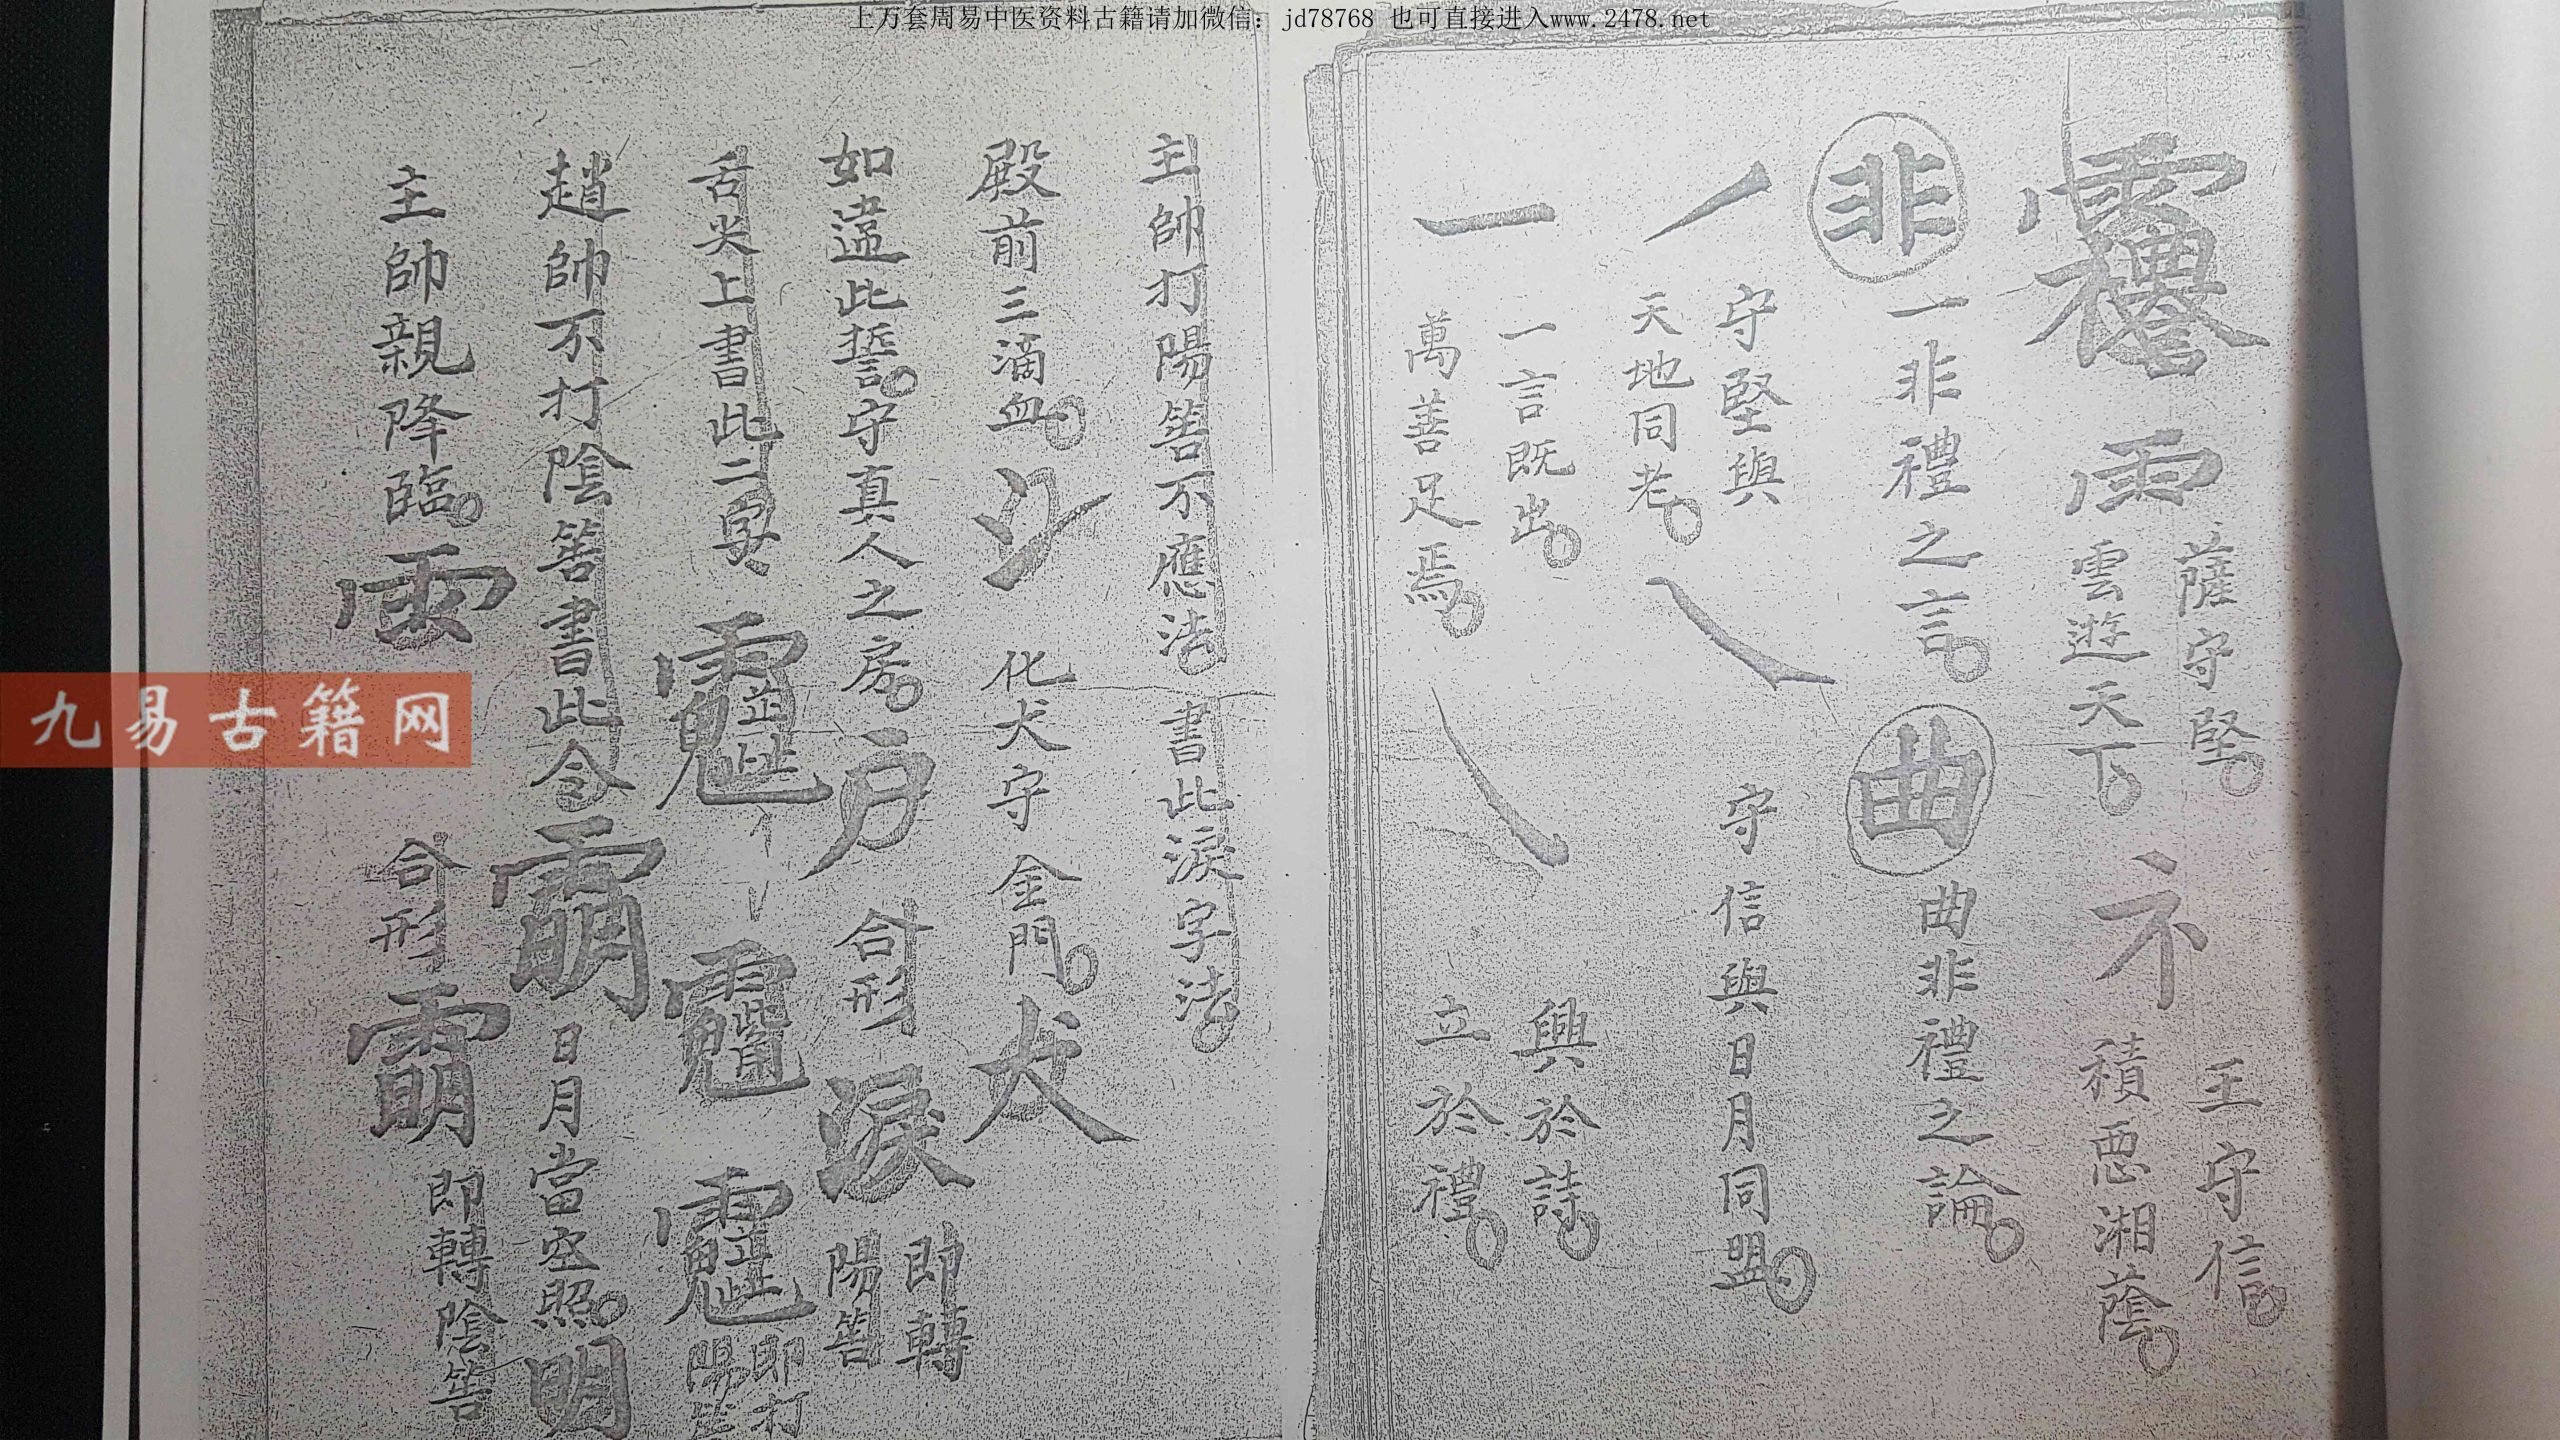 上万套周易中医资料古籍请加微信：jd78768 也可直接进入www.2478.net
雨 薩守堅。雲遊天下。礻 王守信。積惡湘蔭。
非 一非禮之言。曲 曲非禮之論。
守堅與天地同老。守信與日月同盟。
一 一言既出。萬善足焉。興於詩。立於禮。
主帥打陽筶不應法。書此淚字法。
殿前三滴血。氵 化犬守金門。犬
如違此誓。守真人之房。戶 合形 淚 即轉陽筶
舌尖上書此二字 即打陽
趙帥不打陰筶書此令 日月當空照。明
主帥親降臨。雨 合形 即轉陰筶
九易古籍网